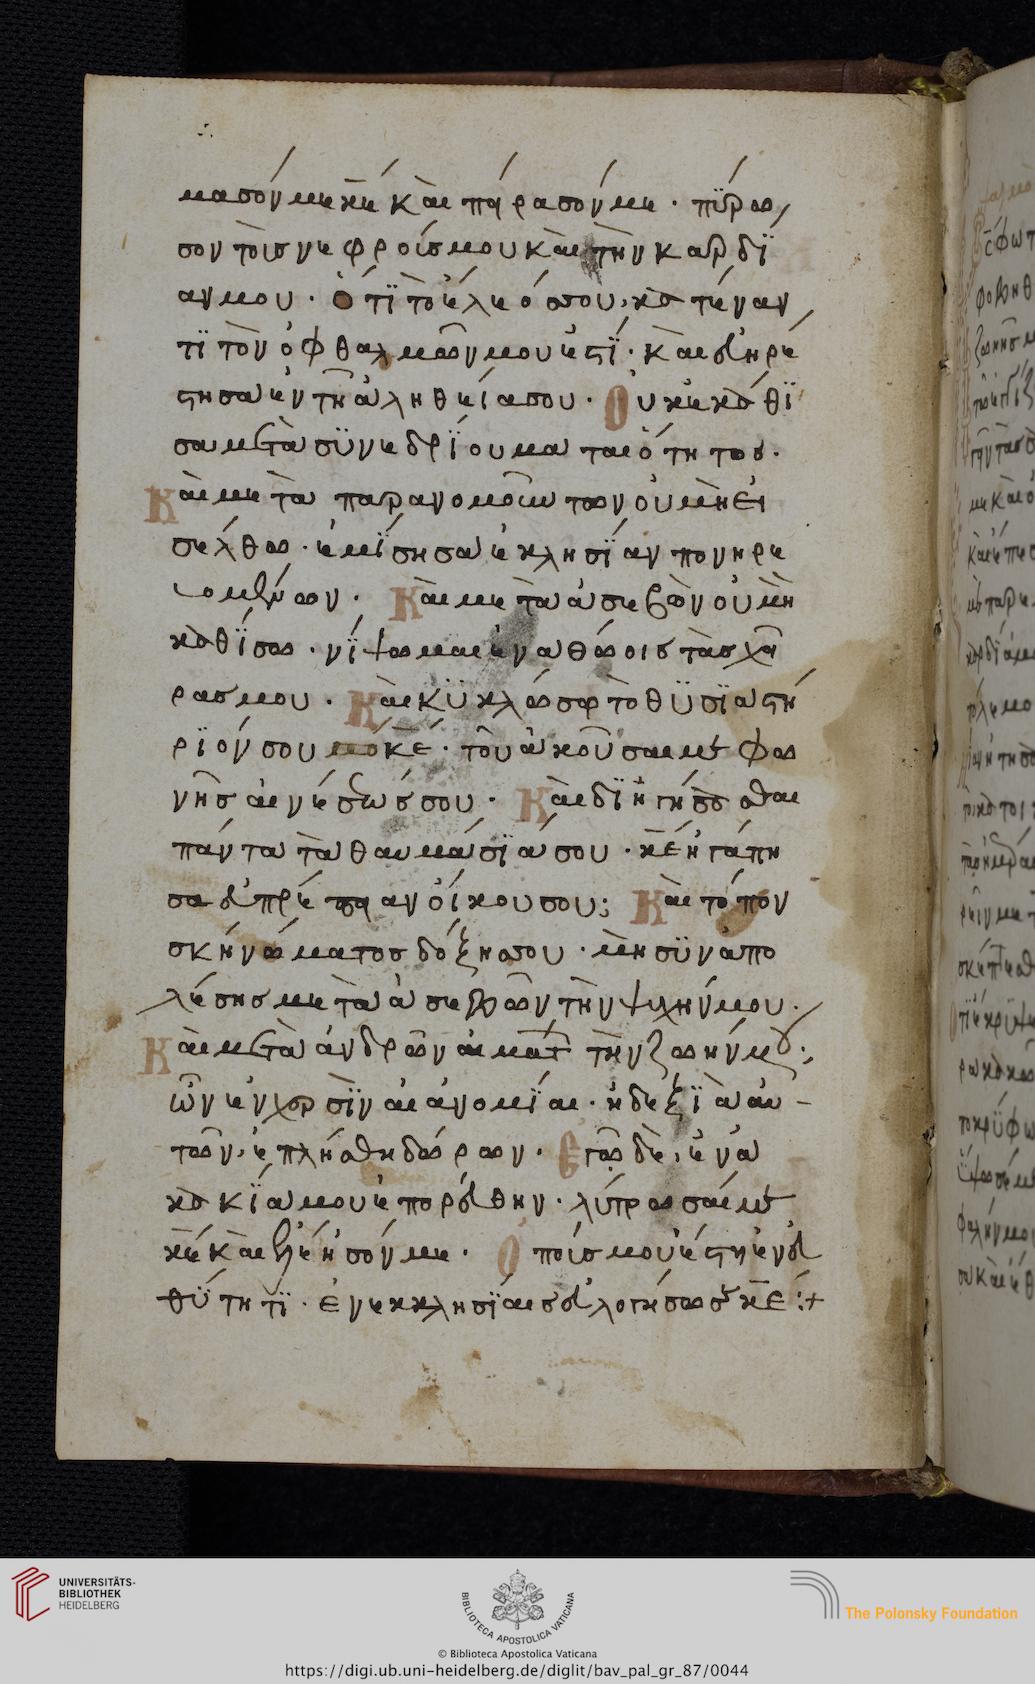 μασόν με κέ καὶ πείρασόν με · πύρω
σον τοὺς νεφρούς μου καὶ τὴν καρδί
αν μου · Ὅτι τὸ ἔλεός σου, κατέναν
τι τὸν ὀφθαλμῶν μου ἐστί · καὶ εὐηρέ
στησα ἐν τῆ ἀληθεία σου · Οὐκ ἐκάθι
σα μετὰ συνεδρίου ματαιότητος ·
Καὶ μετὰ παρανομούντων οὐ μὴ εἰ
σέλθω · ἐμίσησα ἐκλησίαν πονηρε
υομένων · Καὶ μετὰ ἀσεβῶν οὐ μὴ
καθίσω · νίψωμαι ἐν ἀθώοις τὰς χεῖ
ρας μου · Καὶ κυκλώσω τὸ θυσιαστή
ριόν σου κε · τοῦ ἀκοῦσαι με φω
νῆς αἰνέσεώς σου · Καὶ διηγήσασθαι
πάντα τὰ θαυμάσιά σου · κε ἠγάπη
σα εὐπρέπειαν οἴκου σου; Καὶ τόπον
σκηνώματος δόξης σου · μὴ συναπο
λέσης με τὰ ἀσεβῶν τὴν ψυχήν μου ·
Καὶ μετὰ ἀνδρῶν αἱμάτ τὴν ζωήν μου ·
ὧν ἐν χερσὶν αἱ ἀνομίαι · ἡ δεξιὰ αὐ-
τῶν, ἐπλήσθη δώρων · Ἐγὼ δὲ, ἐν ἀ
κακία μου ἐπορεύθην · λύτρωσαί με
κέ καὶ ἐλέησόν με · Ὁ ποῦς μου ἔστη ἐν εὐ
θύτητι · ἐν ἐκκλησίαις εὐλογήσω σε κε :+
UNIVERSITÄTS-
BIBLIOTHEK
HEIDELBERG
BIBLIOTECA APOSTOLICA VATICANA
© Biblioteca Apostolica Vaticana
The Polonsky Foundation
https://digi.ub.uni-heidelberg.de/diglit/bav_pal_gr_87/0044